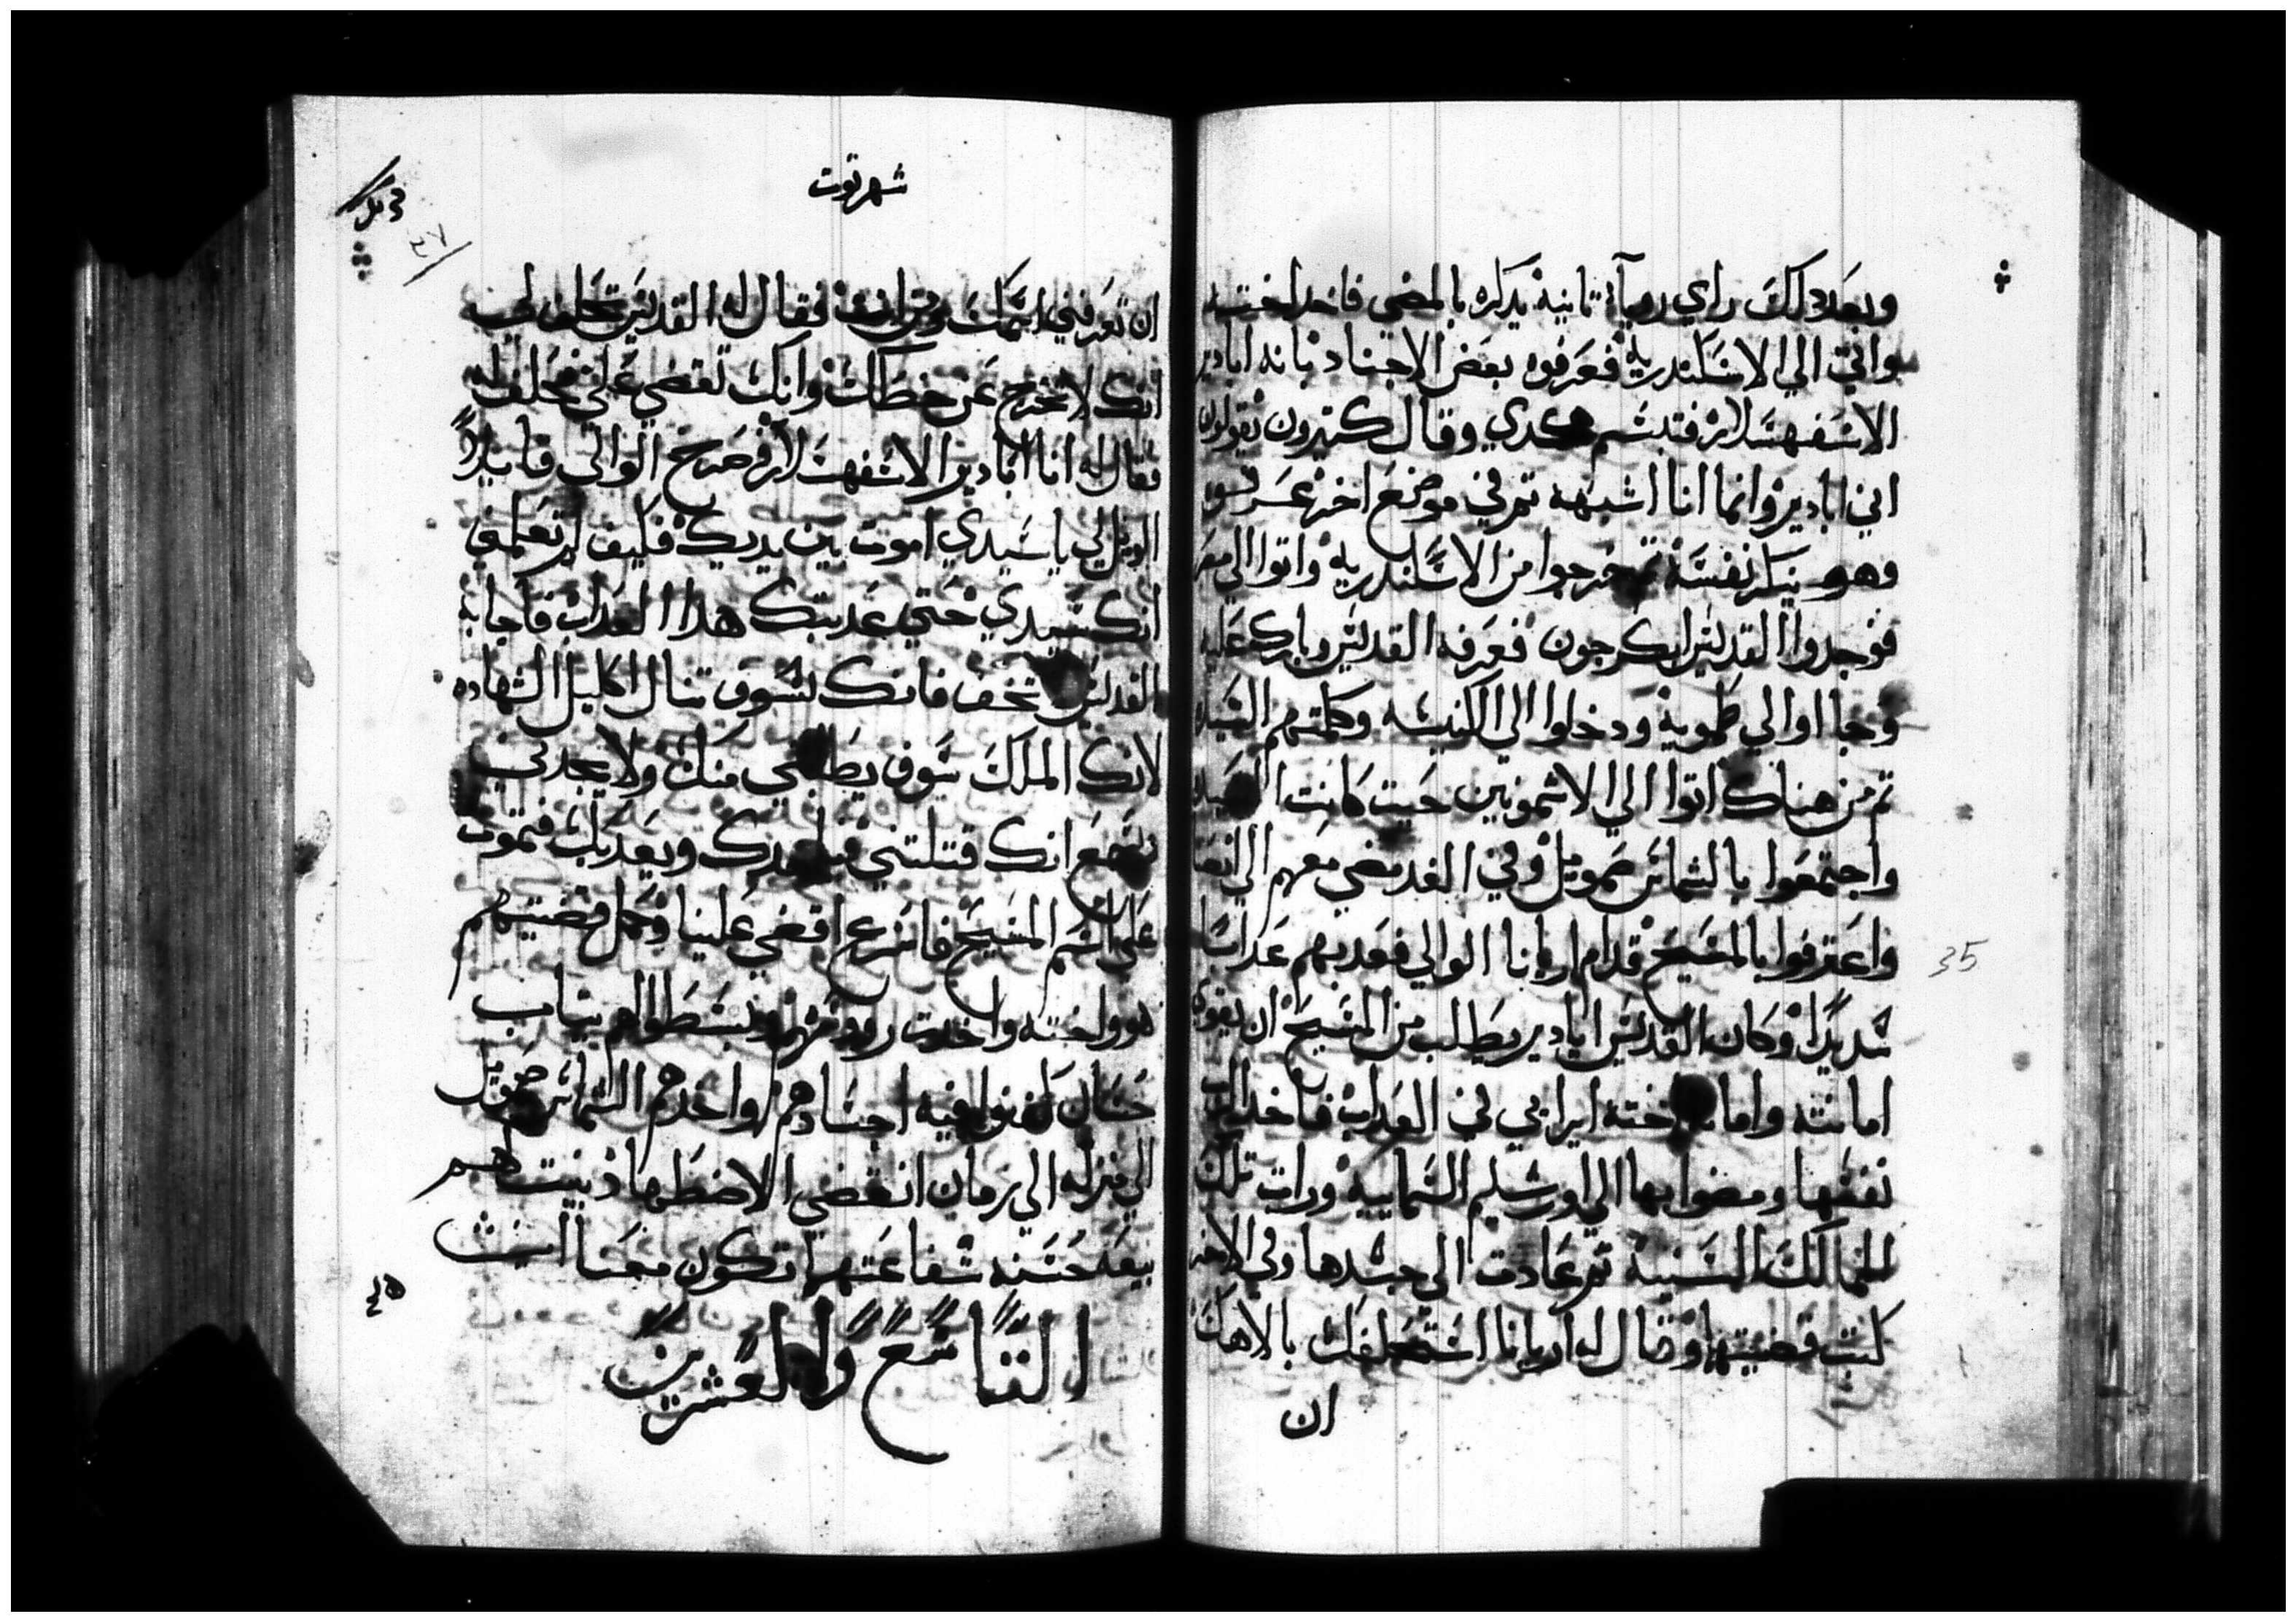 وبعد دلك راي رويآ تانيه يدكره بالمضي فاخد اخته
واتي الي الاسكندريه فعرفوه بعض الاجناد بانه ابادير
الاسفهسلار فتبسم وقال كتيرون يقولون
اني ابادير وانما انا اشبهه تم في موضع اخر عرفوه
وهو ينكر نفسه تم خرجوا من الاسكندريه واتوا الي مصر
فوجدوا القديس ابكرجون فعرفه القديس وبارك عليه
وجااوا الي طمويه ودخلوا الي الكنيسه وكلمتهم السيده
تم من هناك اتوا الي الاشمونين حيت كانت
واجتمعوا بالشماس صمويل وفي الغد مضي معهم الي انصنا
واعترفوا بالمسيح قدام اريانا الوالي فعدبهم عدابا
شديدا وكان القديس ابادير يطلب من المسيح ان يقوي
امانته واما اخته ايرايي في العداب فاخد الرب
نفسها ومضوا بها الي اورشليم السماييه ورات تلك
الممالك السنيه تم عادت الي جسدها وفي الاخر
كتب قضيتها وقال له اريانا استحلفك بالاهك
ان
35
شهر توت
٤٧
ان تعرفني اسمك ومن انت فقال له القديس تحلف لي
انك لا تخرج عن خطاك وانك تقضي علي فحلف له
فقال له انا ابادير الاسفهسلار فصرخ الوالي قايلا
الويل لي يا سيدي اموت بين يديك فكيف لم تعلمني
انك سيدي حتي عدبتك هدا العداب فاجابه
القديس تخف فانك لسوف تنال اكليل الشهاده
لانك الملك سوف يطلبني منك ولا يجدني
يسمع انك قتلتني ويعدبك فتموت
علي اسم المسيح فاسرع اقضي علينا وكمل قضيتهم
هو واخته واخدت روسهم وبسطوا لهم تياب
حسان كفنوا فيه اجسادهم واخدهم الشماس صمويل
الي منزله الي زمان انقضي الاضطهاد بنيت لهم
بيعه حسنه شفاعتهما تكون معنا امين
التاسع والعشرين